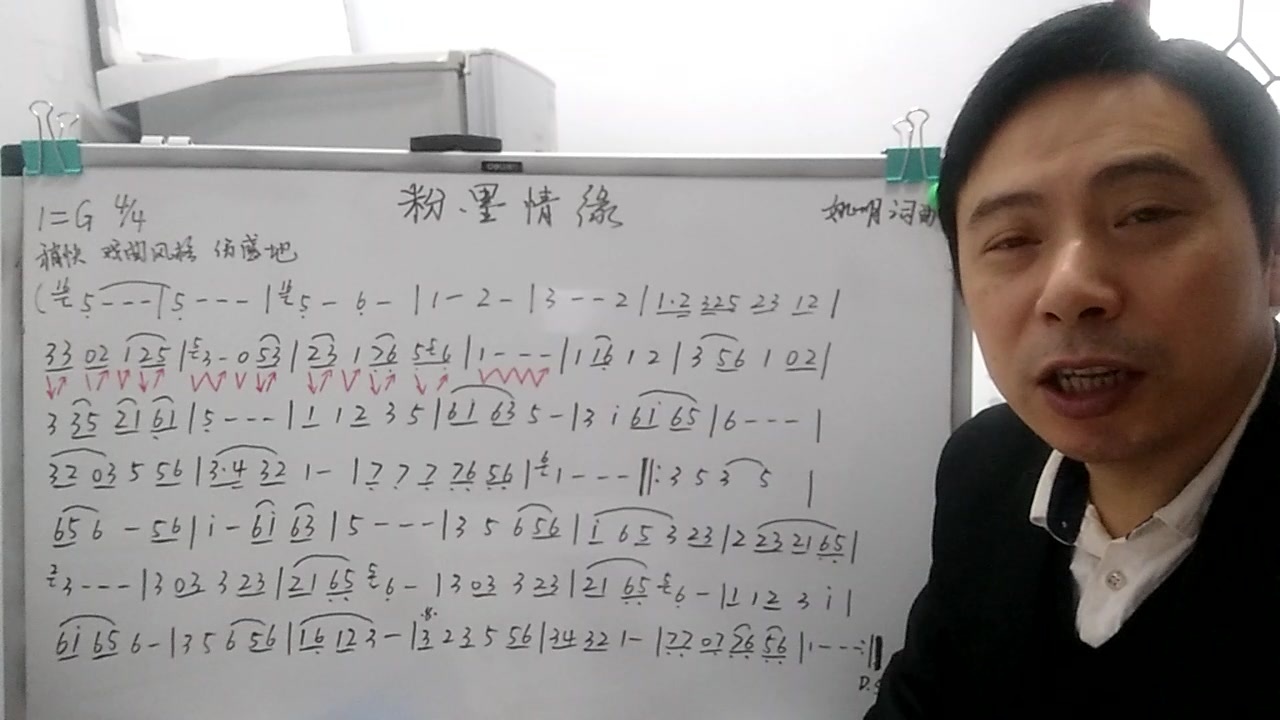 粉墨情缘
1=G 4/4
姚明 词曲
稍快 戏曲风格 伤感地
( 5 - - - | 5 - - - | 5 - 6 - | 1 - 2 - | 3 - - 2 | 1·2 325 23 12 |
33 02 125 | 3 - 0 53 | 23 1 26 5 6 | 1 - - - | 1 16 1 2 | 3 56 1 02 |
3 35 21 61 | 5 - - - | 1 12 3 5 | 61 63 5 - | 3 i 6i 65 | 6 - - - |
32 03 5 56 | 3·4 32 1 - | 7 7 7 76 56 | 1 - - - ‖: 3 5 3 5 |
65 6 - 56 | i - 6i 63 | 5 - - - | 3 5 6 56 | i 65 3 23 | 2 23 21 65 |
3 - - - | 3 03 3 23 | 21 65 6 - | 3 03 3 23 | 21 65 6 - | 1 12 3 i |
6i 65 6 - | 3 5 6 56 | 16 12 3 - | 3 2 3 5 56 | 34 32 1 - | 77 07 76 56 | 1 - - - :‖
D.S